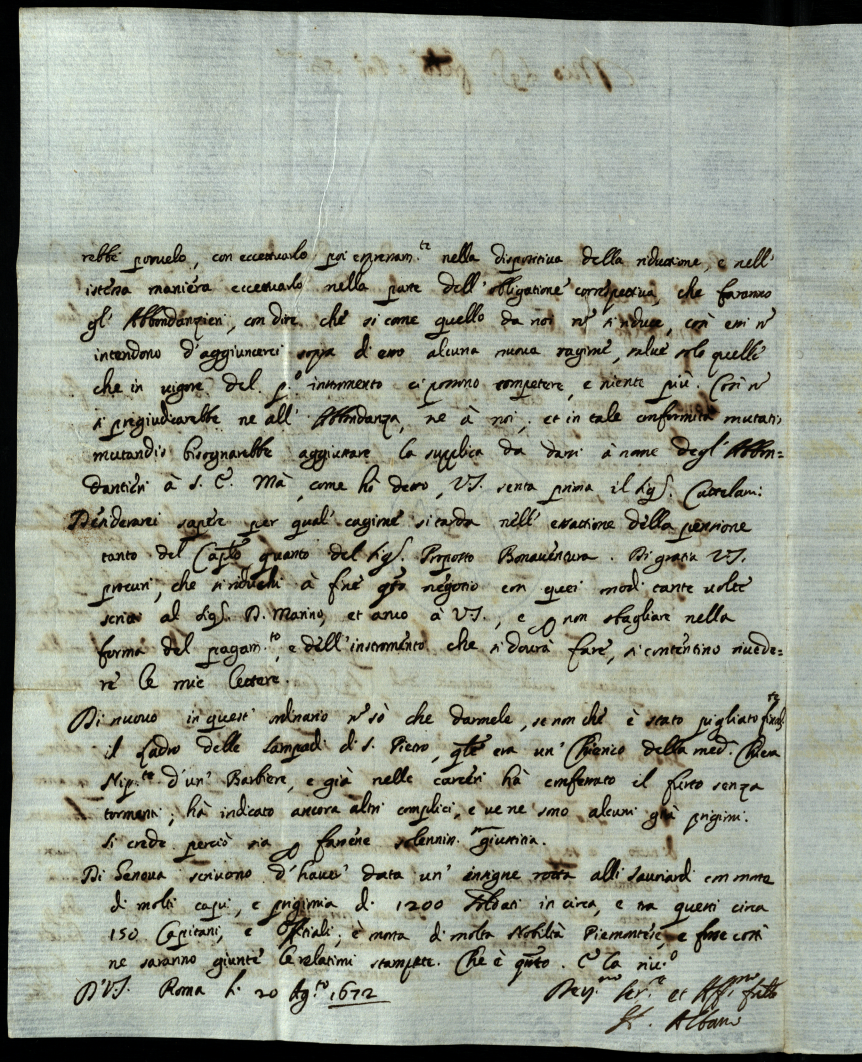 rebbe porvelo, con eccettuarlo poi espressam.te nella dispositiva della riduttione, e nell'
istessa maniera eccettuarlo nella parte dell'obligatione correspettiva, che faranno
gl'Abbondanzieri, con dire che si come quello da noi nō si riduce, così essi nō
intendono d'aggiuncerci sopra di esso alcuna nuova ragione, salve solo quelle
che in vigore del p.o instromento ci possono competere, e niente più. Così nō
si pregiudicarebbe ne all'Abbondanza, ne à noi; et in tale conformità mutatis
mutandis bisognarebbe aggiustare la supplica da darsi à nome degl'Abbon=
dantieri à S. E. Mà, come hò detto, V.S. senta prima il Sig.r Cattelani.
Desiderarei sapere per qual cagione si tarda nell'essattione della pensione
tanto del Cap.lo quanto del Sig.r Proposto Bonaventura. Di gratia V.S.
procuri, che si riduchi à fine q̄sto negotio con quei modi tante volte
scritti al Sig.r D. Marino, et anco à V.S., e p non sbagliare nella
forma del pagam.to, e dell'instromento che si dovrà fare, si contentino rivede=
re le mie lettere.
Di nuovo in quest'ordinario nō sò che darmele, se non che è stato pigliato final.te
il Ladro delle Lampadi di S. Pietro, q̄le era un'Chierico della med.a Chiesa
Nip.te d'un'Barbiere, e già nelle carceri hà confessato il furto senza
tormenti; hà indicato ancora altri complici, e ve ne sono alcuni già prigioni.
Si crede perciò sia p farsene solenniss.ma giustitia.
Di Genova scrivono d'haver data un'insigne rotta alli Savoiardi con morte
di molti capi, e prigionia di 1200 soldati in circa, e tra questi circa
150 Capitani, e Offitiali; è morta di molta Nobiltà Piemontese, e forse costì
ne saranno giunte le relationi stampate. Che è q̄nto. E la riv.o
D.V.S. Roma li 20 Ag.to 1672
Dev.mo Ser.re et Aff.mo frãllo
Albani